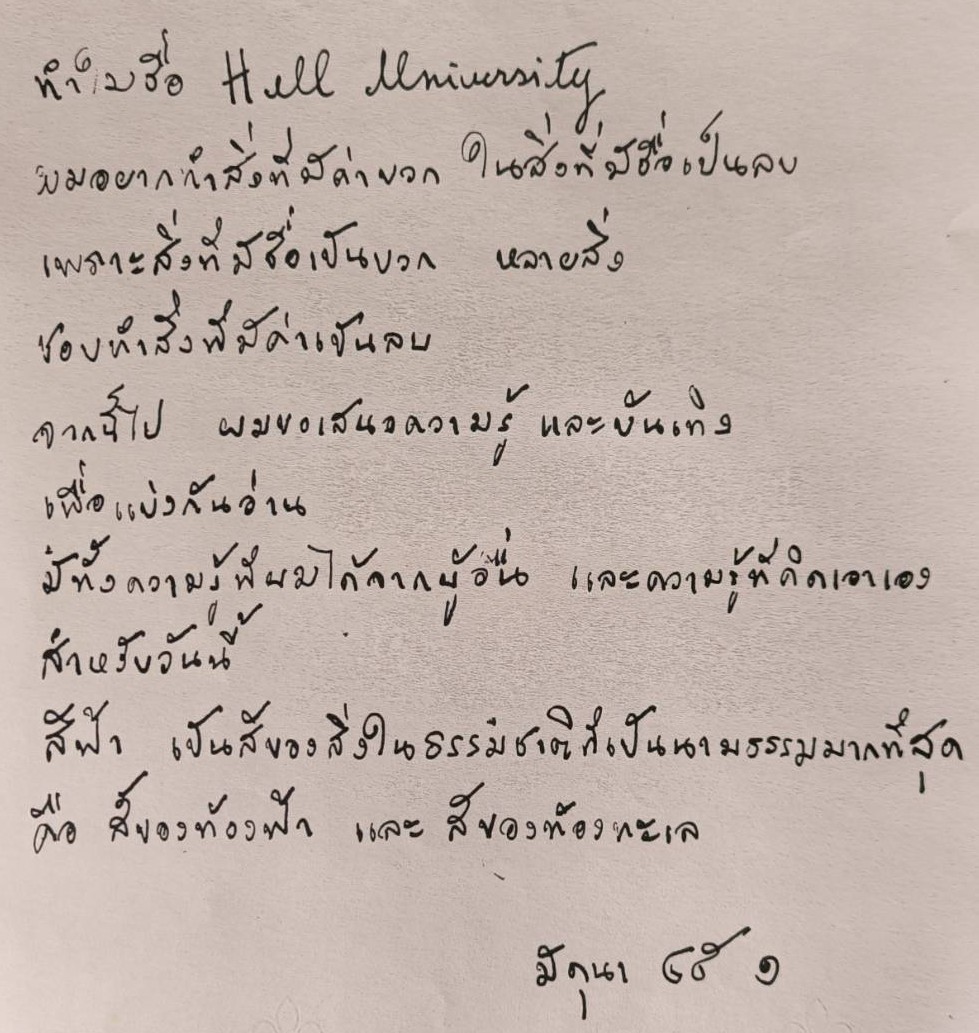 ทำไมชื่อ Hell University
ผมอยากทำสิ่งที่มีค่าบวก ในสิ่งที่มีชื่อเป็นลบ
เพราะสิ่งที่มีชื่อเป็นบวก หลายสิ่ง
ชอบทำสิ่งที่มีค่าเป็นลบ
จากนี้ไป ผมขอเสนอความรู้ และบันเทิง
เพื่อแบ่งกันอ่าน
มีทั้งความรู้ที่ผมได้จากผู้อื่น และความรู้ที่คิดเอาเอง
สำหรับวันนี้
สีฟ้า เป็นสีของสิ่งในธรรมชาติที่เป็นนามธรรมมากที่สุด
คือ สีของท้องฟ้า และ สีของท้องทะเล
มิถุนา ๑